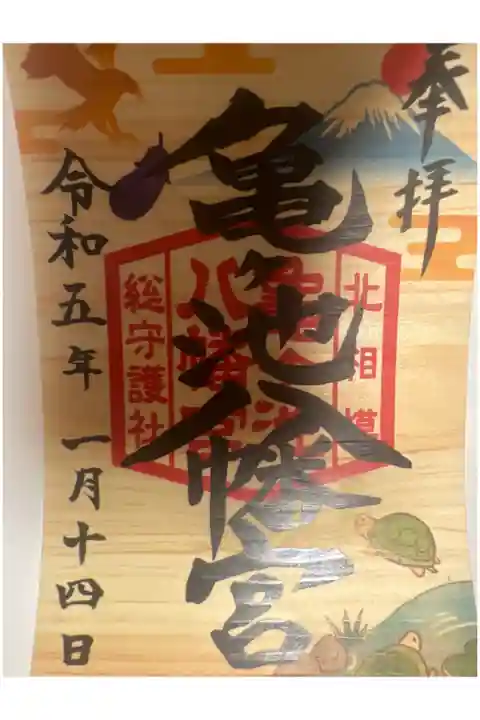 奉拝
亀ヶ池八幡宮
北相模
亀ヶ池
八幡宮
総守護社
令和五年 一月十四日